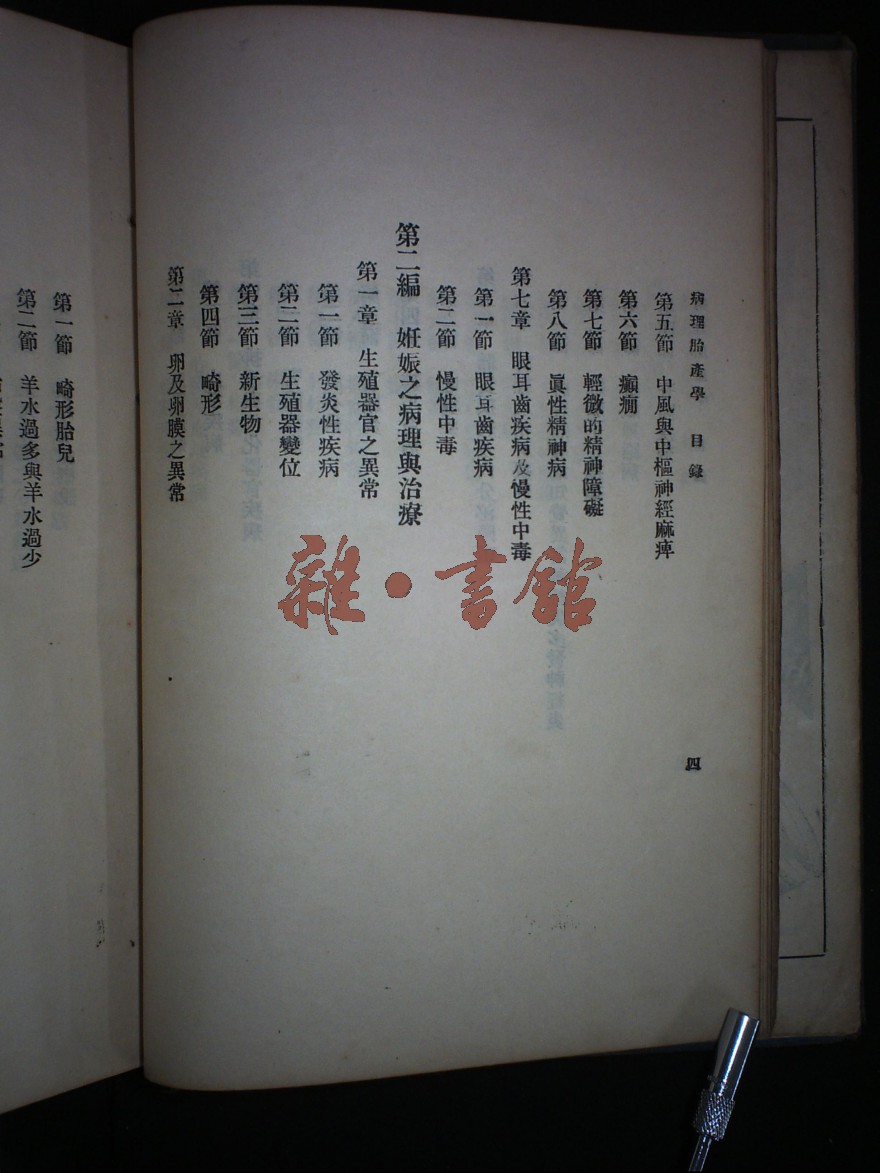 病理胎產學 目錄
第五節 中風與中樞神經麻痺
第六節 癲癎
第七節 輕微的精神障礙
第八節 眞性精神病
第七章 眼耳齒疾病及慢性中毒
第一節 眼耳齒疾病
第二節 慢性中毒
第二編 姙娠之病理與治療
第一章 生殖器官之異常
第一節 發炎性疾病
第二節 生殖器變位
第三節 新生物
第四節 畸形
第二章 卵及卵膜之異常
四
第一節 畸形胎兒
第二節 羊水過多與羊水過少
雜·書館